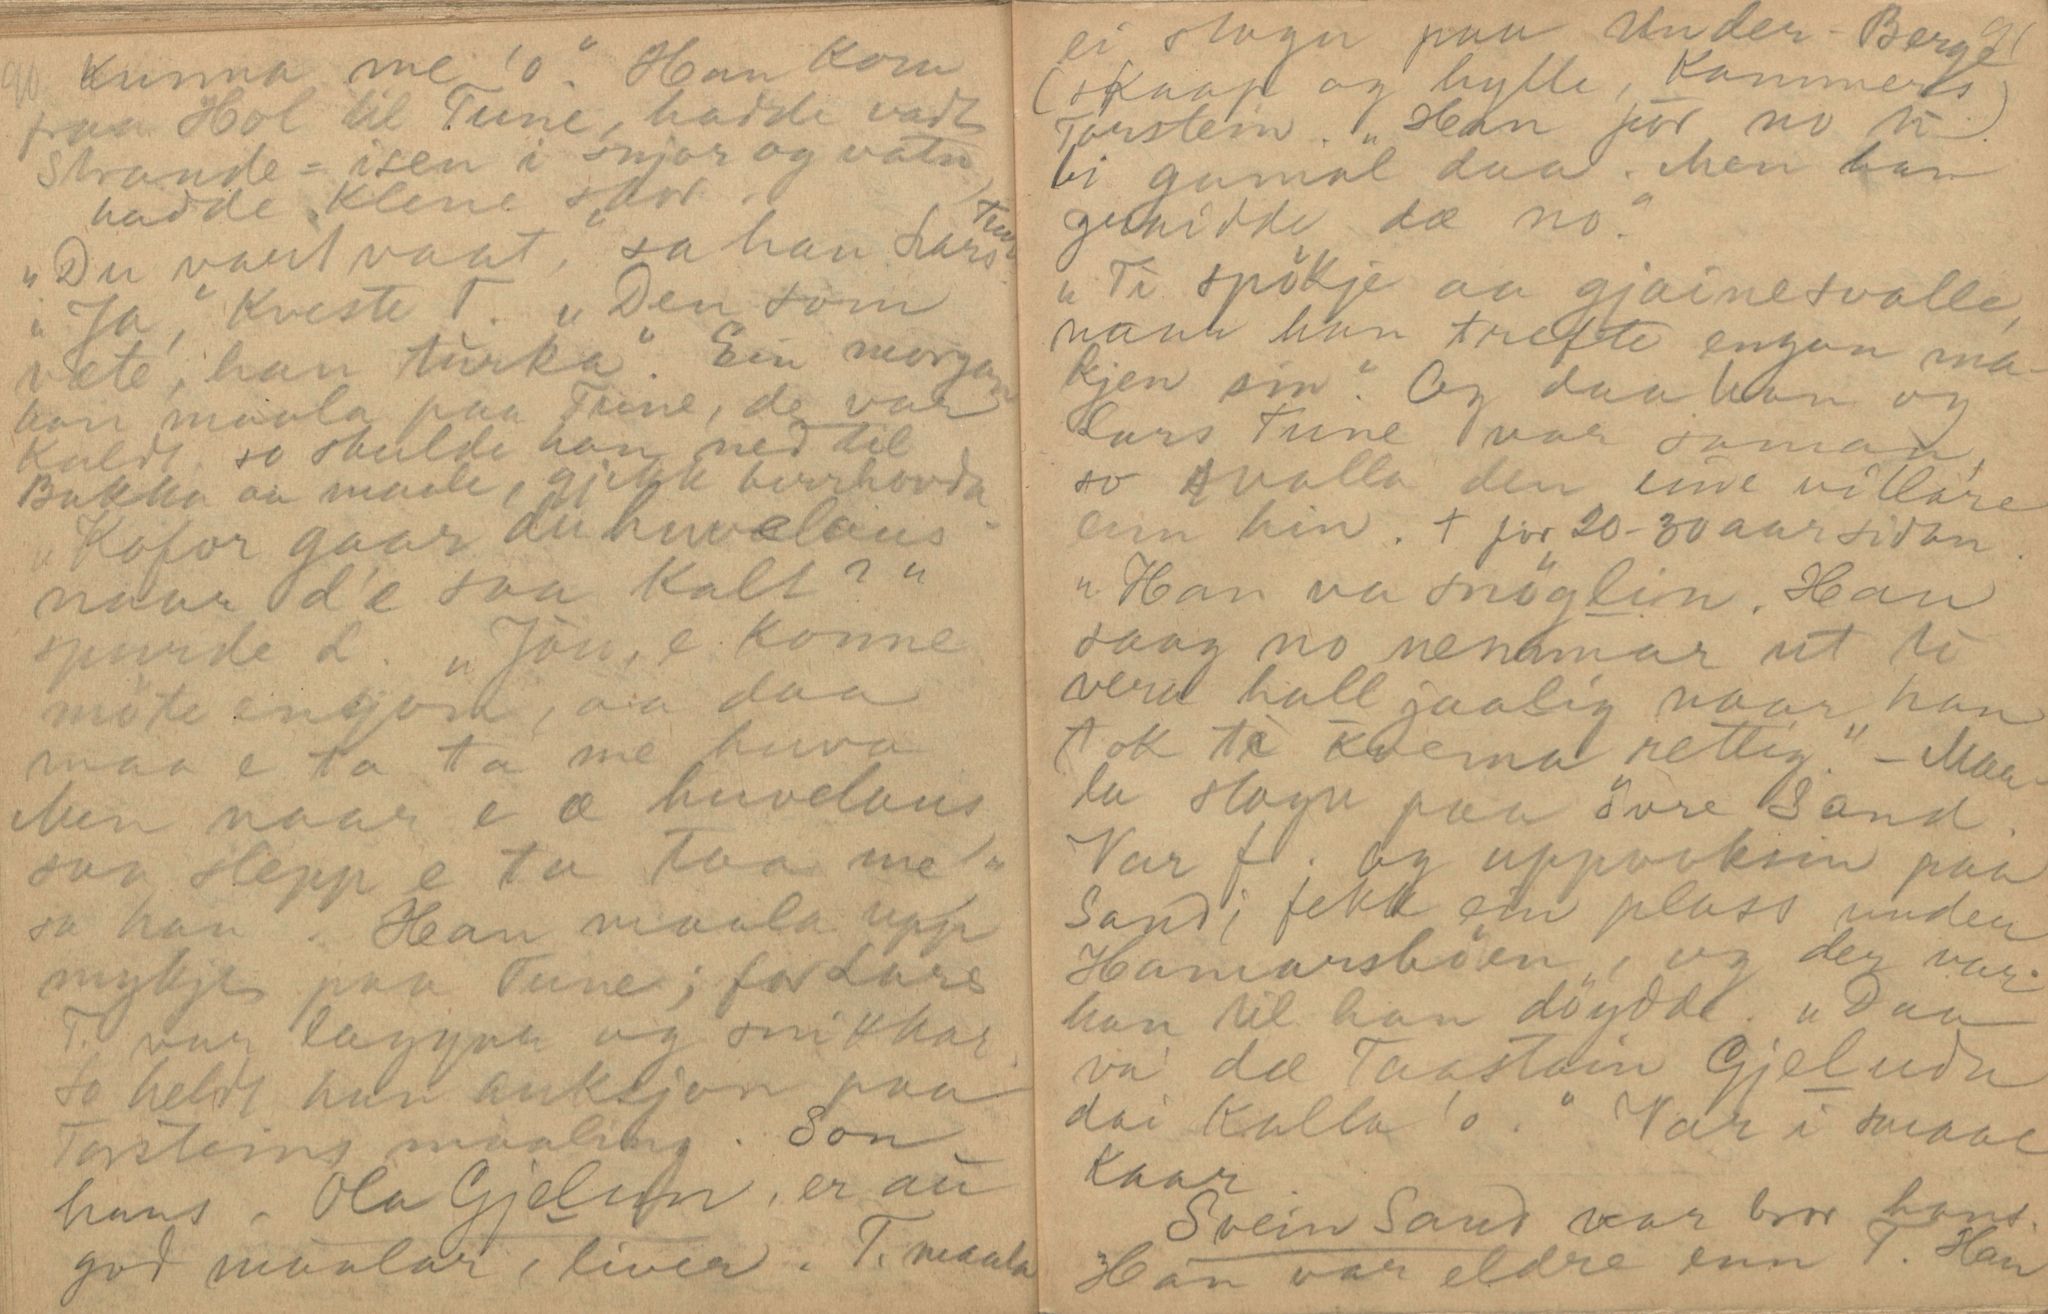 90
Kunna me 'o." Han kom
fraa Hol til Tune, hadde vadt
Strande = isen i snjor og vatn,
hadde klene skor.
"Du vart vaat," sa han Lars Tune
"Ja," kveste T. "Den som
væte, han turka". Ein morgon
han maala paa Tune, de var
kaldt, so skulde han ned til
Bakka aa maale, gjekk berrhovda.
"Kofor gaar du huvelaus
naar d'e saa kalt?"
spurde L. "Jau, e konne
möte engon, aa daa
maa e ta ta me huva
Men naar e æ huvelaus
saa slepp e ta taa me"
sa han. Han maala upp
mykje paa Tune; for Lars
T. var laggar og snikkar.
So heldt han auksjon paa
Torsteins maaling. Son
hans, Ola Gjelun, er au
god maalar, liver. T. maala
91
ei stogu paa Under-Berge
(skaap og hylle, Kammers)
Torstein. "Han for no ti
bi gamal daa. Men han
gnidde dæ no."
"Ti spökje aa gjainesvalle,
naar han trefte engon ma-
kjen sin". Og daa han og
Lars Tune var saman,
so svalla den eine villare
enn hin. † för 20-30 aar sidan.
"Han va snöglin. Han
saag no nemmar ut ti
vera hall jaalig naar han
tok ti kverna rettig." – Maa-
la stogu paa Övre Sand.
Var f. og uppvoksin paa
Sand; fekk ein plass under
Hamarsböen, og der var
han til han döydde. "Daa
va' dæ Taastain Gjeludn
dai kalla 'o." Var i smaae
kaar.
Svein Sand var bror hans.
Han var eldre enn T. Han